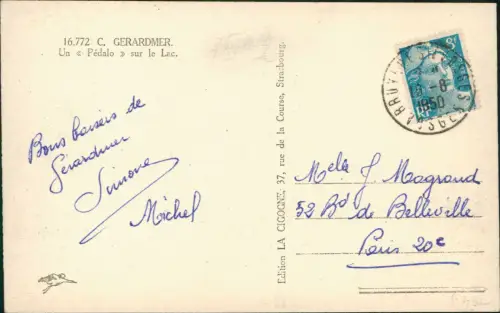 16.772 C. GERARDMER.
Un « Pédalo » sur le Lac.
Bons baisers de
Gérardmer
Simone
Michel
Edition LA CIGOGNE, 37, rue de la Course, Strasbourg.
1950
VOSGES
Melle J Magrand
52 Bd de Belleville
Paris 20e